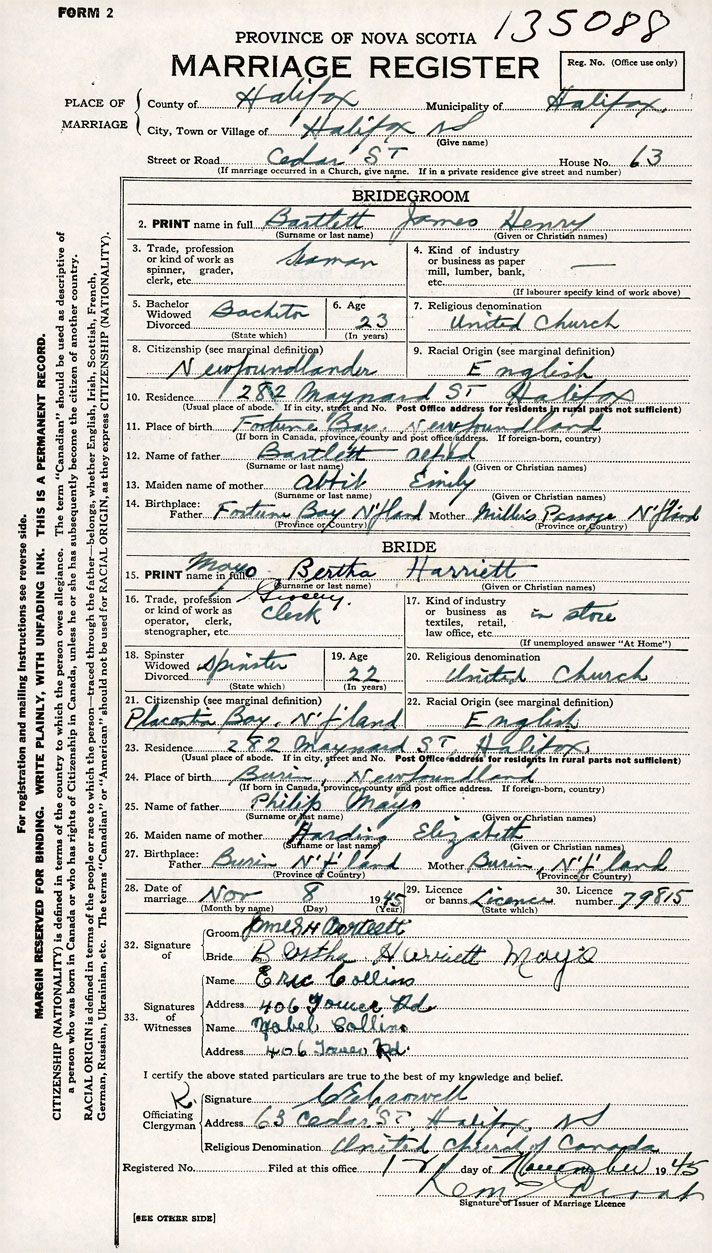 FORM 2
135088
PROVINCE OF NOVA SCOTIA
MARRIAGE REGISTER
Reg. No. (Office use only)
PLACE OF MARRIAGE
County of Halifax Municipality of Halifax.
City, Town or Village of Halifax NS
(Give name)
Street or Road Cedar ST House No. 63
(If marriage occurred in a Church, give name. If in a private residence give street and number)
BRIDEGROOM
2. PRINT name in full Bartlett James Henry
(Surname or last name) (Given or Christian names)
3. Trade, profession or kind of work as spinner, grader, clerk, etc. Seaman
4. Kind of industry or business as paper mill, lumber, bank, etc. —
(If labourer specify kind of work above)
5. Bachelor Widowed Divorced Bachelor
(State which)
6. Age 23
(In years)
7. Religious denomination United Church
8. Citizenship (see marginal definition) Newfoundlander
9. Racial Origin (see marginal definition) English
10. Residence 282 Maynard ST Halifax
(Usual place of abode. If in city, street and No. Post Office address for residents in rural parts not sufficient)
11. Place of birth Fortune Bay, Newfoundland
(If born in Canada, province, county and post office address. If foreign-born, country)
12. Name of father Bartlett Alfred
(Surname or last name) (Given or Christian names)
13. Maiden name of mother Abbit Emily
(Surname or last name) (Given or Christian names)
14. Birthplace: Father Fortune Bay N'fland Mother Millers Passage N'fland
(Province or Country) (Province or Country)
BRIDE
15. PRINT name in full Mayo Bertha Harriett
(Surname or last name) (Given or Christian names)
16. Trade, profession or kind of work as operator, clerk, stenographer, etc. Grocery. Clerk
17. Kind of industry or business as textiles, retail, law office, etc. in store
(If unemployed answer "At Home")
18. Spinster Widowed Divorced Spinster
(State which)
19. Age 22
(In years)
20. Religious denomination United Church
21. Citizenship (see marginal definition) Placentia Bay, N'f'land
22. Racial Origin (see marginal definition) English
23. Residence 282 Maynard ST, Halifax.
(Usual place of abode. If in city, street and No. Post Office address for residents in rural parts not sufficient)
24. Place of birth Burin, Newfoundland
(If born in Canada, province, county and post office address. If foreign-born, country)
25. Name of father Philip Mayo
(Surname or last name) (Given or Christian names)
26. Maiden name of mother Harding Elizabeth
(Surname or last name) (Given or Christian names)
27. Birthplace: Father Burin N'f'land Mother Burin, N'f'land
(Province or Country) (Province or Country)
28. Date of marriage Nov 8 1945
(Month by name) (Day) (Year)
29. Licence or banns Licence
(State which)
30. Licence number 79815
32. Signature of
Groom James H Bartlett
Bride Bertha Harriett Mayo
33. Signatures of Witnesses
Name Eric Collins
Address 406 Tower Rd
Name Mabel Collins
Address 406 Tower Rd.
I certify the above stated particulars are true to the best of my knowledge and belief.
Officiating Clergyman
Signature
Address 63 Cedar ST, Halifax, NS
Religious Denomination United Church of Canada
Registered No. Filed at this office day of November 1945
Signature of Issuer of Marriage Licence
[SEE OTHER SIDE]
For registration and mailing instructions see reverse side.
MARGIN RESERVED FOR BINDING. WRITE PLAINLY, WITH UNFADING INK. THIS IS A PERMANENT RECORD.
CITIZENSHIP (NATIONALITY) is defined in terms of the country to which the person owes allegiance. The term "Canadian" should be used as descriptive of
a person who was born in Canada or who has rights of Citizenship in Canada, unless he or she has subsequently become the citizen of another country.
RACIAL ORIGIN is defined in terms of the people or race to which the person—traced through the father—belongs, whether English, Irish, Scottish, French,
German, Russian, Ukrainian, etc. The terms "Canadian" or "American" should not be used for RACIAL ORIGIN, as they express CITIZENSHIP (NATIONALITY).